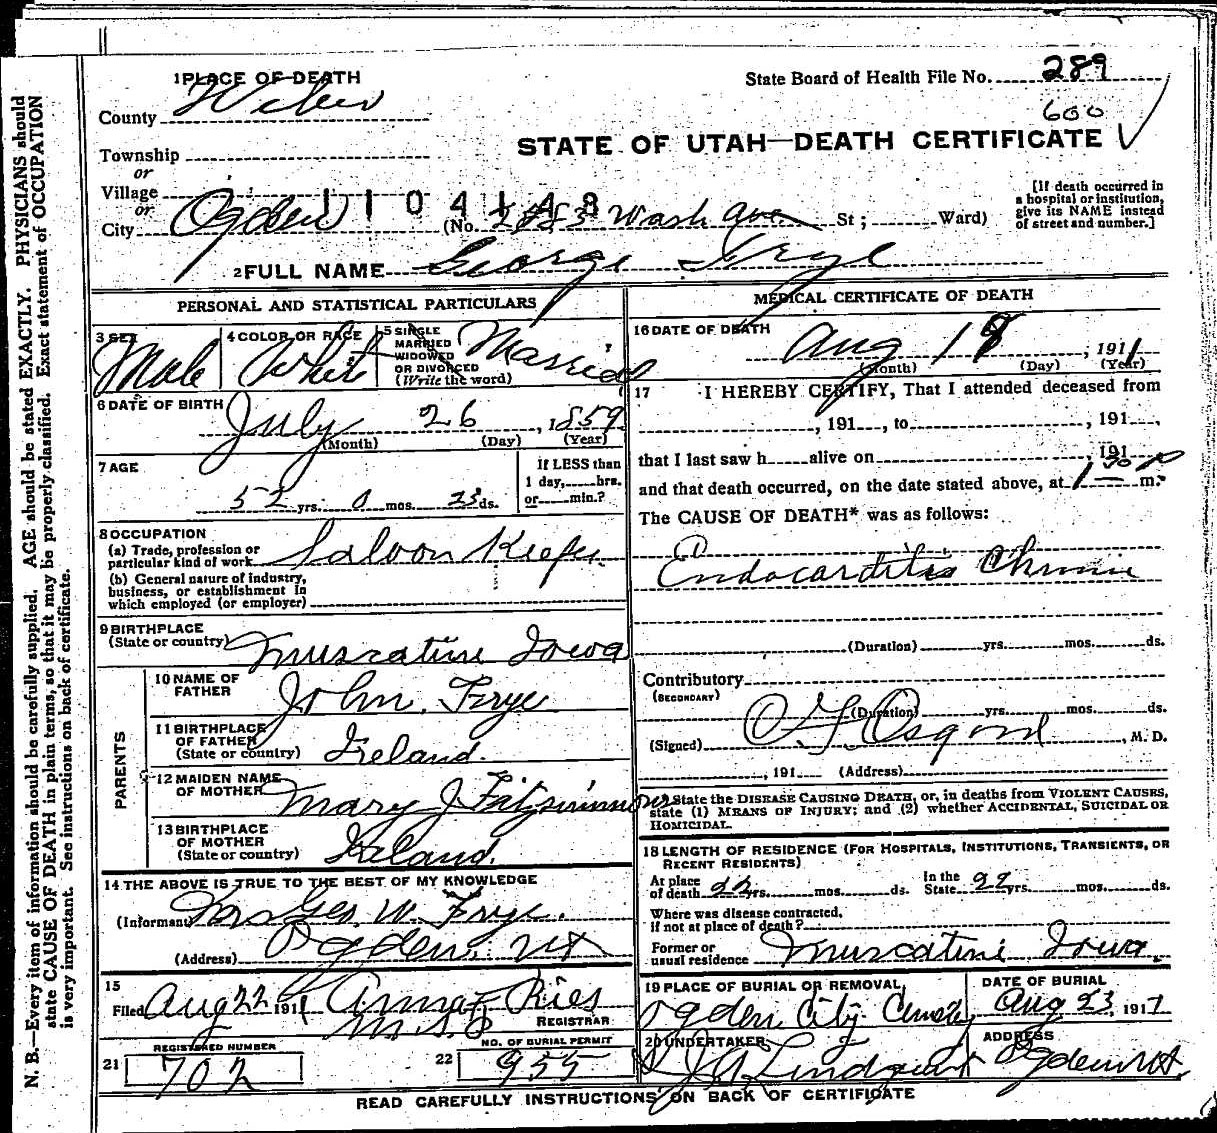 1 PLACE OF DEATH
State Board of Health File No. 289
County Weber
600
STATE OF UTAH—DEATH CERTIFICATE
Township
or
Village
or
1104148
City Ogden (No. Wash Ave St; Ward)
[If death occurred in a hospital or institution, give its NAME instead of street and number.]
2 FULL NAME George Frye
PERSONAL AND STATISTICAL PARTICULARS
3 SEX Male
4 COLOR OR RACE White
5 SINGLE MARRIED WIDOWED OR DIVORCED (Write the word) Married
6 DATE OF BIRTH
July 26, 1859
(Month) (Day) (Year)
7 AGE
52 yrs. 0 mos. 23 ds.
If LESS than 1 day, hrs. or min.?
8 OCCUPATION
(a) Trade, profession or particular kind of work Saloon Keeper
(b) General nature of industry, business, or establishment in which employed (or employer)
9 BIRTHPLACE
(State or country) Muscatine Iowa
PARENTS
10 NAME OF FATHER John Frye
11 BIRTHPLACE OF FATHER (State or country) Ireland.
12 MAIDEN NAME OF MOTHER Mary J. Fitzsimmons
13 BIRTHPLACE OF MOTHER (State or country) Ireland.
14 THE ABOVE IS TRUE TO THE BEST OF MY KNOWLEDGE
(Informant) Mrs Geo W. Frye.
(Address) Ogden, Ut
15
Filed Aug 22 1911 Anna Ries
REGISTRAR
REGISTERED NUMBER
21 702
NO. OF BURIAL PERMIT
22 955
MEDICAL CERTIFICATE OF DEATH
16 DATE OF DEATH
Aug 18, 1911
(Month) (Day) (Year)
17 I HEREBY CERTIFY, That I attended deceased from
, 191 , to , 191 ,
that I last saw h alive on , 191
and that death occurred, on the date stated above, at 1 30 P m.
The CAUSE OF DEATH* was as follows:
Endocarditis Chronic
(Duration) yrs. mos. ds.
Contributory
(SECONDARY)
(Duration) yrs. mos. ds.
(Signed) Osgood, M. D.
, 191 (Address)
*State the DISEASE CAUSING DEATH, or, in deaths from VIOLENT CAUSES, state (1) MEANS OF INJURY; and (2) whether ACCIDENTAL, SUICIDAL OR HOMICIDAL.
18 LENGTH OF RESIDENCE (FOR HOSPITALS, INSTITUTIONS, TRANSIENTS, OR RECENT RESIDENTS)
At place of death 22 yrs. mos. ds. In the State 22 yrs. mos. ds.
Where was disease contracted, if not at place of death?
Former or usual residence Muscatine Iowa.
19 PLACE OF BURIAL OR REMOVAL
Ogden City
DATE OF BURIAL
Aug 23, 1911
20 UNDERTAKER
Lindquist
ADDRESS
Ogden Ut.
READ CAREFULLY INSTRUCTIONS ON BACK OF CERTIFICATE
N. B.—Every item of information should be carefully supplied. AGE should be stated EXACTLY. PHYSICIANS should
state CAUSE OF DEATH in plain terms, so that it may be properly classified. Exact statement of OCCUPATION
is very important. See instructions on back of certificate.